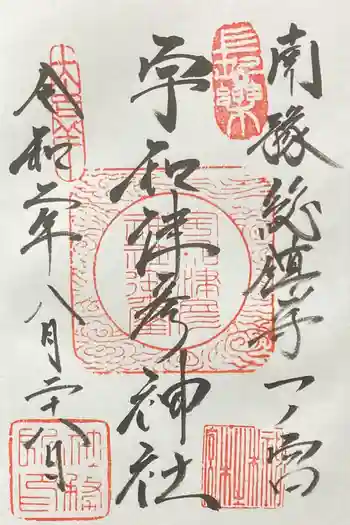 南豫総鎮守一ノ宮
宇和津彦神社
令和二年八月二十八日
長樂